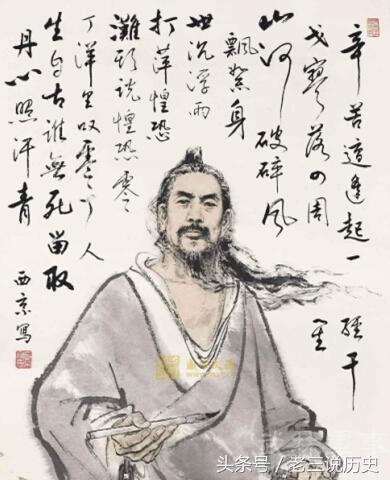 辛苦遭逢起一
經干
戈寥落四周
星
山河破碎風
飄絮身
世沉浮雨
打萍惶恐
灘頭說惶恐零
丁洋里叹零丁人
生自古誰無死留取
丹心照汗青
西京寫
头条号／老三说历史